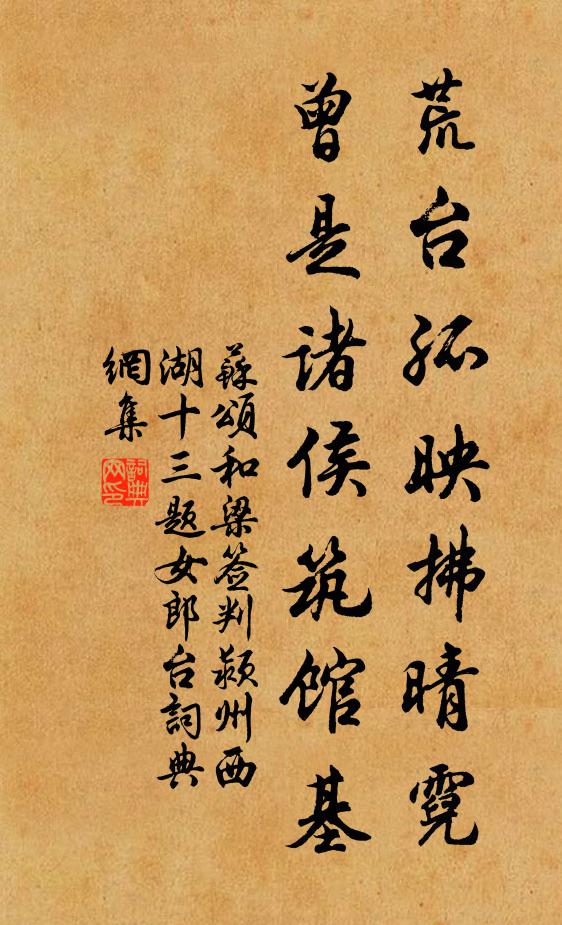 荒台孤映拂晴霓
曾是诸侯筑馆基
蘇頌和梁签判颍州西
湖十三题女郎台詞典
網集
詞典網印